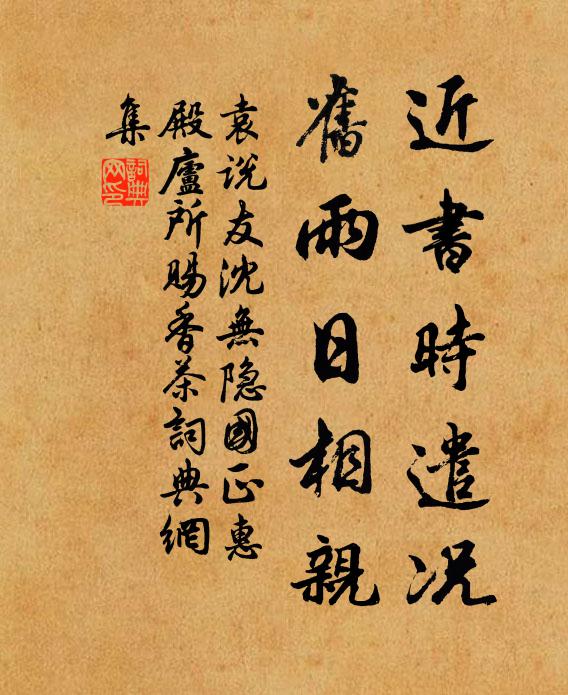 近書時遣況
舊雨日相親
袁说友沈無隐國正惠
殿廬所賜香茶詞典網
集
詞典
网印